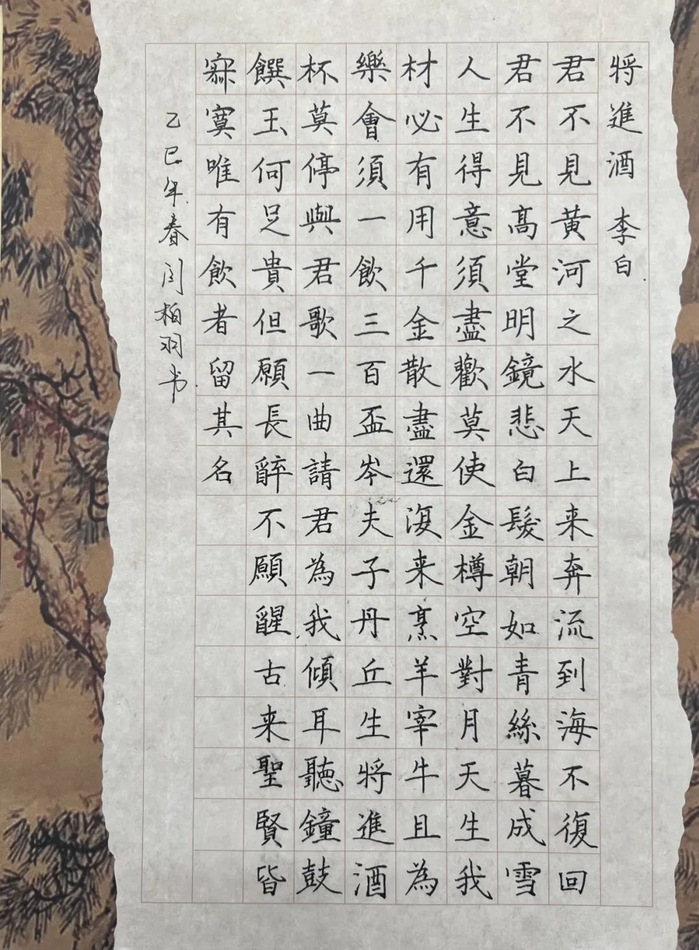 將進酒 李白
君不見黃河之水天上来奔流到海不復回
君不見高堂明鏡悲白髮朝如青絲暮成雪
人生得意須盡歡莫使金樽空對月天生我
材必有用千金散盡還復来烹羊宰牛且為
樂會須一飲三百盃岑夫子丹丘生將進酒
杯莫停與君歌一曲請君為我傾耳聽鐘鼓
饌玉何足貴但願長醉不願醒古来聖賢皆
寂寞唯有飲者留其名
乙巳年春闫柏羽书